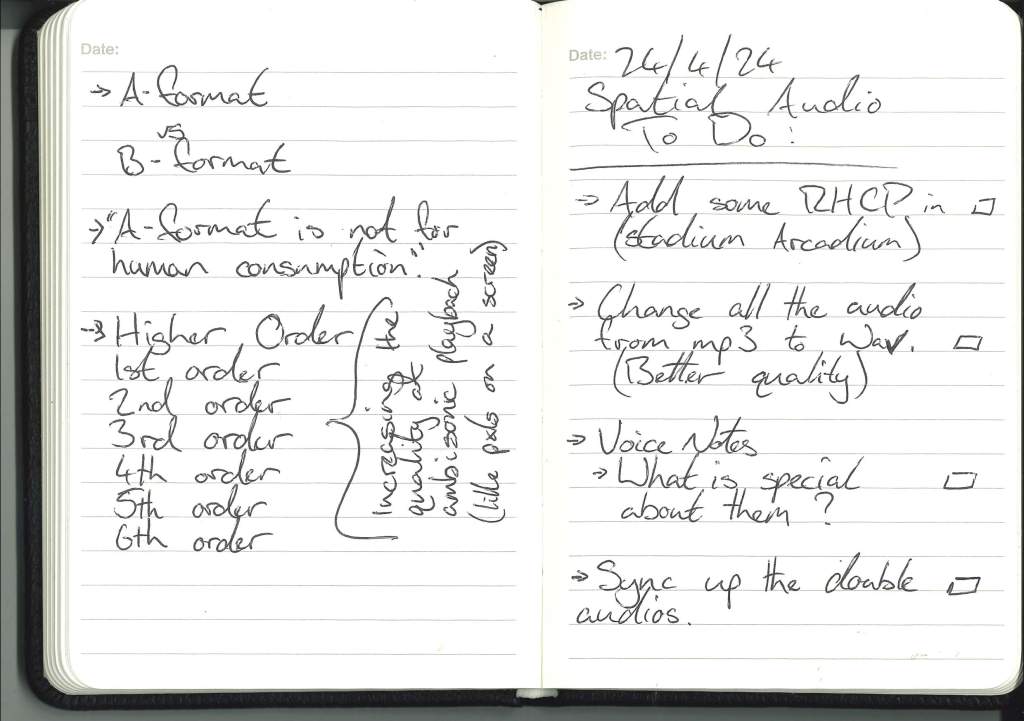 Date:
→ A-format
vs
B-format
→ "A-format is not for
human consumption."
→ Higher Order
1st order
2nd order
3rd order
4th order
5th order
6th order
Increasing the
quality at
ambisonic playback
(like pxls on a screen)
Date: 24/4/24
Spatial Audio
To Do:
→ Add some RHCP in
(Stadium Arcadium)
→ Change all the audio
from mp3 to Wav.
(Better quality)
→ Voice Notes
→ What is special
about them?
→ Sync up the double
audios.